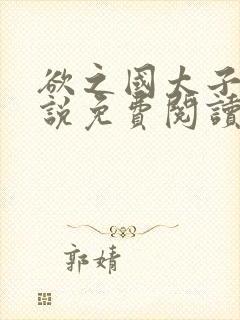 欲之國大子
說免費閱讀
郭婧